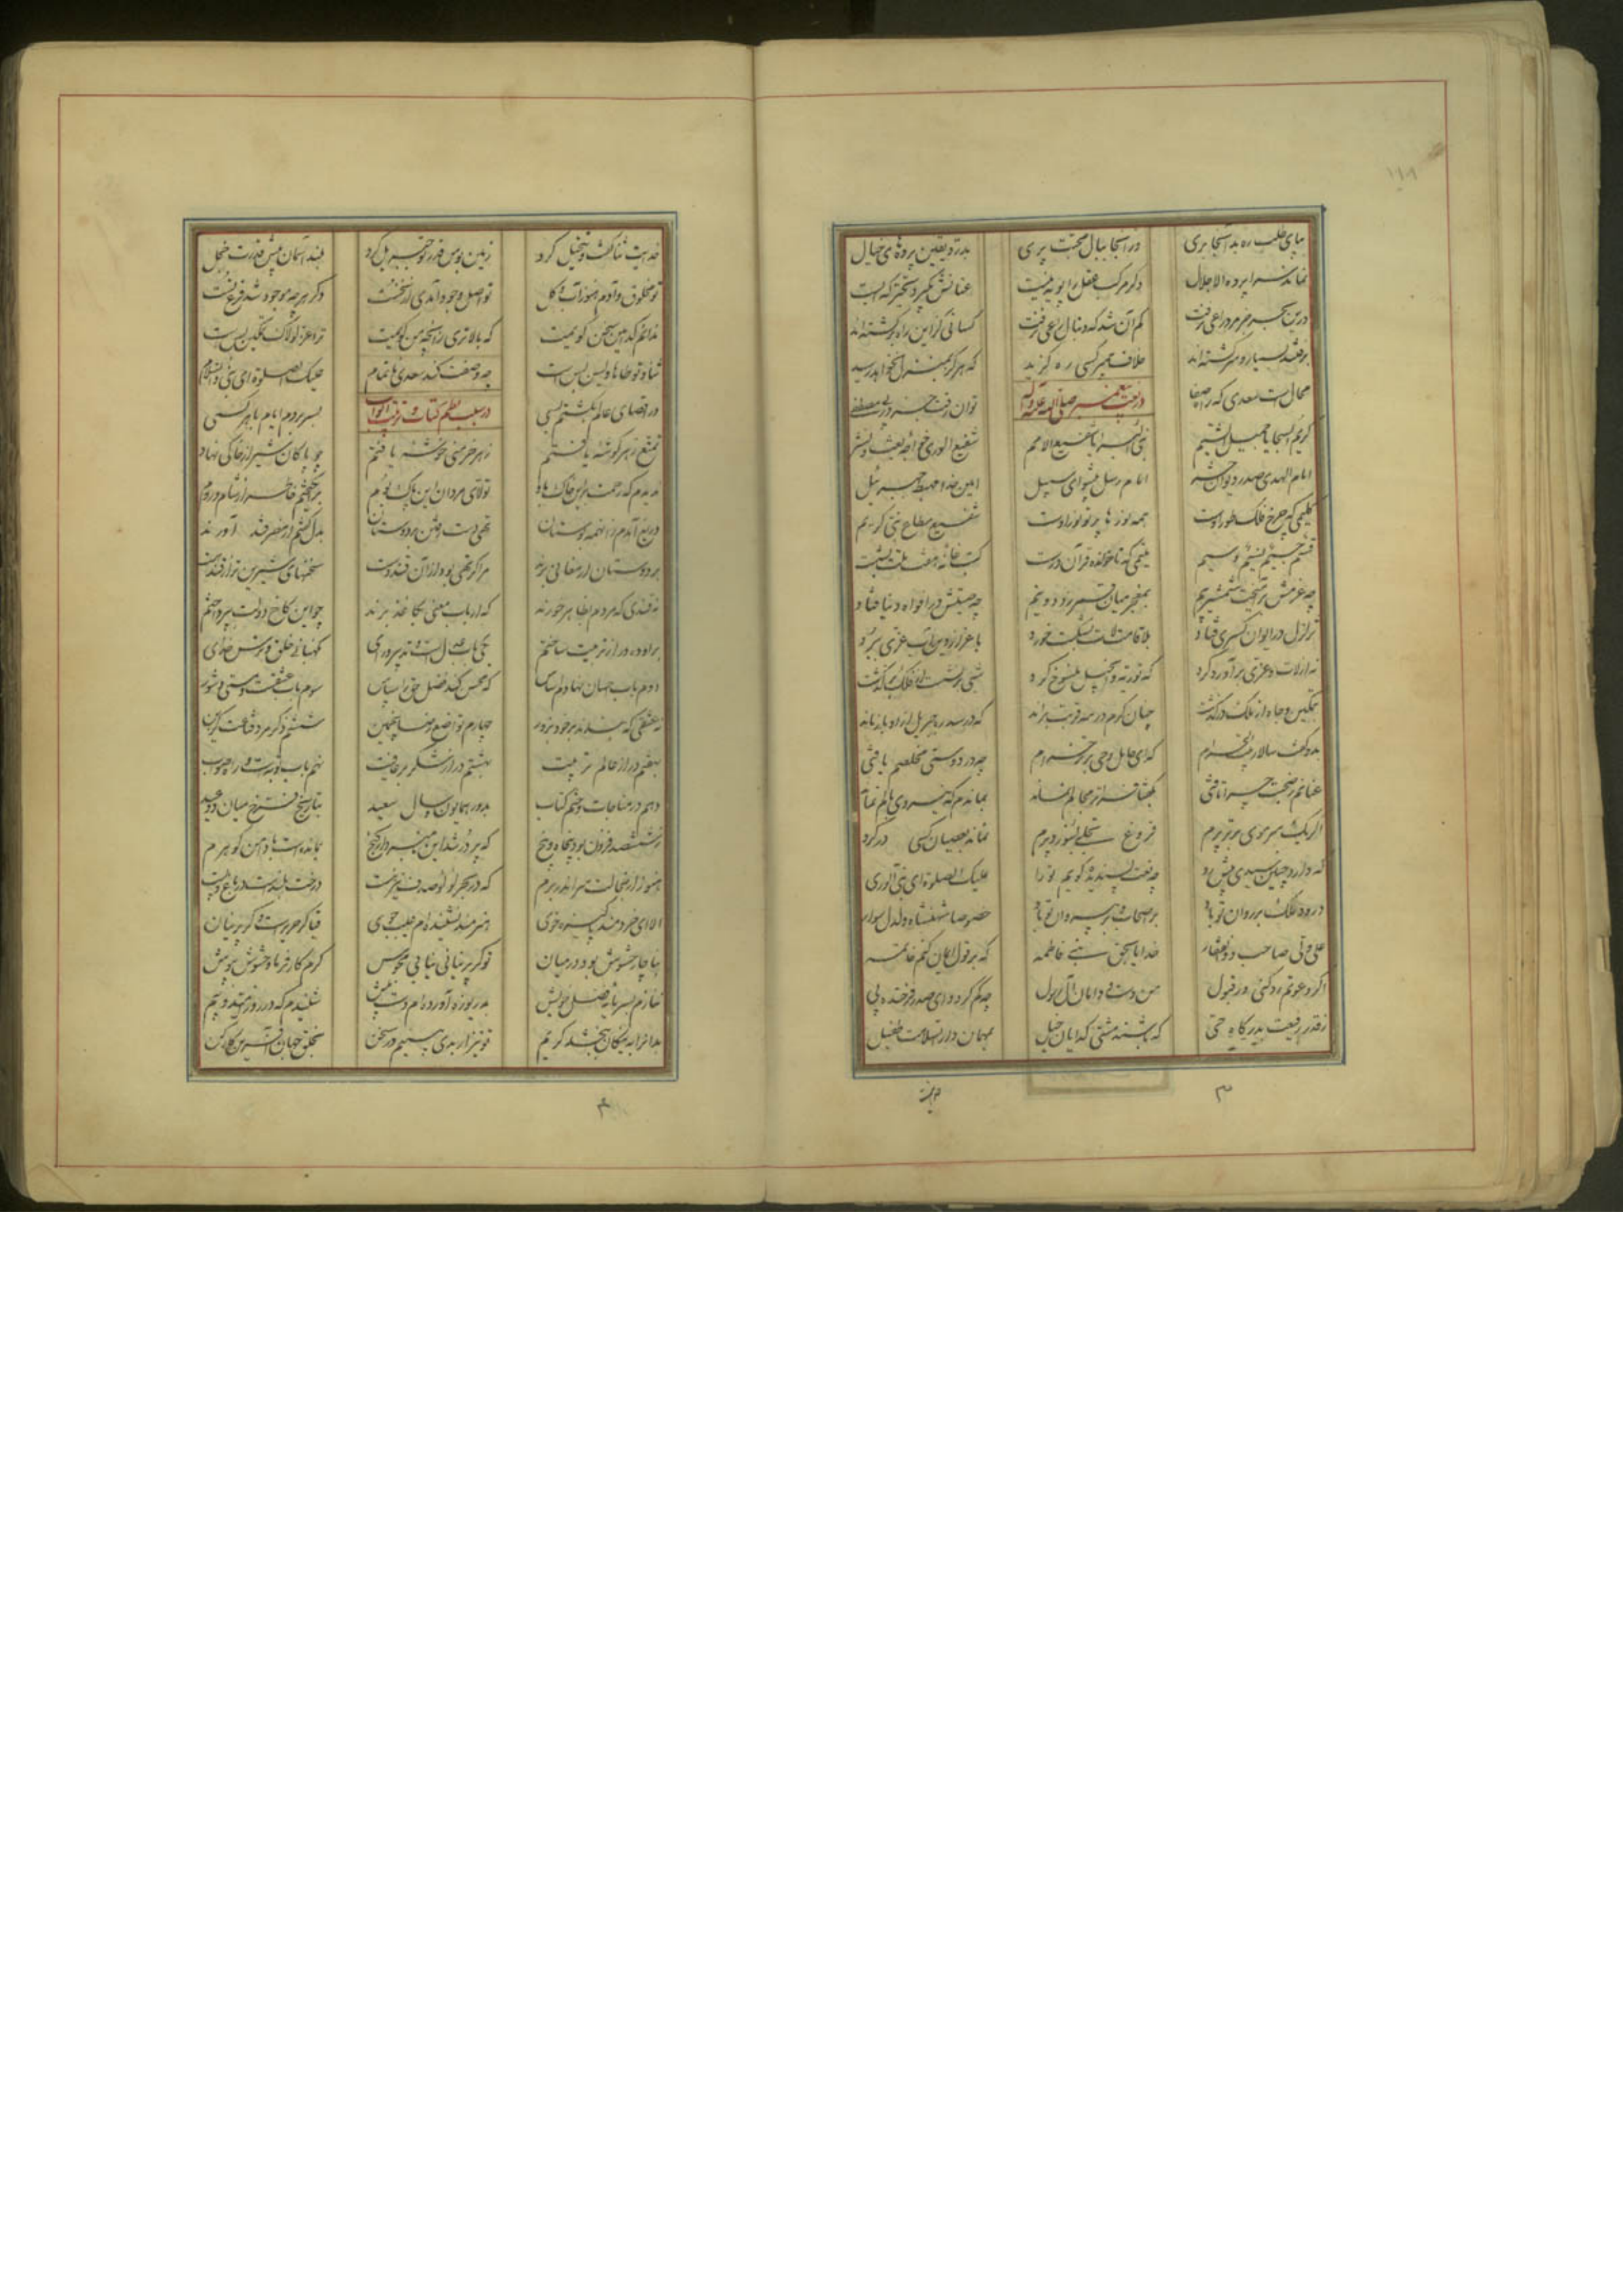 بپای طلب ره بدانجا بری در آنجا ببال محبت پری بدرد یقین پردهای خیال
نماند سراپرده الا جلال دگر مرکب عقل را پویه نیست عنانش بگیرد تحیر که بیست
درین بحر جز مرد راعی نرفت گم آن شد که دنبال راعی نرفت کسانی کزین راه برگشته‌اند
برفتند بسیار و سرگشته‌اند خلاف پیمبر کسی ره گزید که هرگز بمنزل نخواهد رسید
محال است سعدی که راه صفا در نعت پیغمبر صلی الله علیه و آله توان رفت جز در پی مصطفی
کریم السجایا جمیل الشیم نبی البرایا شفیع الامم شفیع الوری خواجه بعث و نشر
امام الهدی صدر دیوان حشر امام رسل پیشوای سبیل امین خدا مهبط جبرئیل
کلیمی که چرخ فلک طور اوست همه نورها پرتو نور اوست شفیع مطاع نبی کریم
قسیم جسیم نسیم وسیم یتیمی که ناخوانده قرآن درست کتب خانه هفت ملت بشست
چو عزمش برآهیخت شمشیر بیم بمعجز میان قمر زد دو نیم چو صیتش در افواه دنیا فتاد
تزلزل در ایوان کسری فتاد بلا قامت لات بشکست خورد باعزاز دین آب عزی ببرد
نه از لات و عزی برآورد گرد که توریة و انجیل منسوخ کرد شبی برنشست از فلک برگذشت
بتمکین و جاه از ملک درگذشت چنان گرم در تیه قربت براند که در سدره جبریل ازو باز ماند
بدو گفت سالار بیت الحرام که ای حامل وحی برتر خرام چو در دوستی مخلصم یافتی
عنانم ز صحبت چرا تافتی بگفتا فراتر مجالم نماند بماندم که نیروی بالم نماند
اگر یک سر موی برتر پرم فروغ تجلی بسوزد پرم نماند بعصیان کسی در گرو
که دارد چنین سیدی پیش رو چه نعت پسندیده گویم ترا علیک الصلوة ای نبی الوری
درود ملک بر روان تو باد بر اصحاب و بر پیروان تو باد خصوصا شهنشاه دلدل سوار
علی ولی صاحب ذوالفقار خدایا بحق بنی فاطمه که بر قول ایمان کنم خاتمه
اگر دعوتم رد کنی ور قبول من و دست و دامان آل رسول چه کم گردد ای صدر فرخنده پی
ز قدر رفیعت بدرگاه حی که باشند مشتی گدایان خیل بمهمان دار السلامت طفیل
خدایت ثنا گفت و تبجیل کرد زمین بوس قدر تو جبریل کرد بلند آسمان پیش قدرت خجل
تو مخلوق و آدم هنوز آب و گل تو اصل وجود آمدی از نخست دگر هرچه موجود شد فرع تست
ندانم کدامین سخن گویمت که بالاتری زانچه من گویمت ترا عز لولاک تمکین بس است
ثنای تو طه و یس بس است چه وصفت کند سعدی ناتمام علیک الصلوة ای نبی والسلام
در اقصای عالم بگشتم بسی در سبب نظم کتاب و ترتیب ابواب بسر بردم ایام با هر کسی
تمتع ز هر گوشه یافتم ز هر خرمنی خوشه یافتم چو پاکان شیراز خاکی نهاد
ندیدم که رحمت برین خاک باد تولای مردان این پاک بوم برانگیختم خاطر از شام و روم
دریغ آمدم زانهمه بوستان تهی دست رفتن بر دوستان بدل گفتم از مصر قند آورند
بر دوستان ارمغانی برند مرا گر تهی بود از آن قند دست سخنهای شیرین تر از قند هست
نه قندی که مردم بظاهر خورند که ارباب معنی بکاغذ برند چو این کاخ دولت بپرداختم
برو ده در از تربیت ساختم یکی باب عدل است و تدبیر و رای نگهبانی خلق و ترس خدای
دوم باب احسان نهادم اساس که محسن کند فضل حق را سپاس سوم باب عشقست و مستی و شور
نه عشقی که بندند بر خود بزور چهارم تواضع رضا پنجمین ششم ذکر مرد قناعت گزین
بهفتم در از عالم تربیت بهشتم در از شکر بر عافیت نهم باب توبه است و راه صواب
دهم در مناجات و ختم کتاب بروز همایون و سال سعید بتاریخ فرخ میان دو عید
ز ششصد فزون بود پنجاه و پنج که پر در شد این نامبردار گنج بمانده است با دامن گوهرم
هنوز از خجالت سر اندر برم که در بحر لؤلؤ صدف نیز هست درخت بلند است در باغ و پست
الا ای خردمند پاکیزه خوی هنرمند نشنیده‌ام عیب جوی قبا گر حریر است و گر پرنیان
بناچار حشوش بود در میان تو گر پرنیانی نیابی مجوش کرم کار فرما و حشوش بپوش
ننازم بسرمایه فضل خویش بدریوزه آورده‌ام دست پیش شنیدم که در روز امید و بیم
بدانرا به نیکان ببخشد کریم تو نیز ار بدی بینیم در سخن بخلق جهان آفرین کار کن